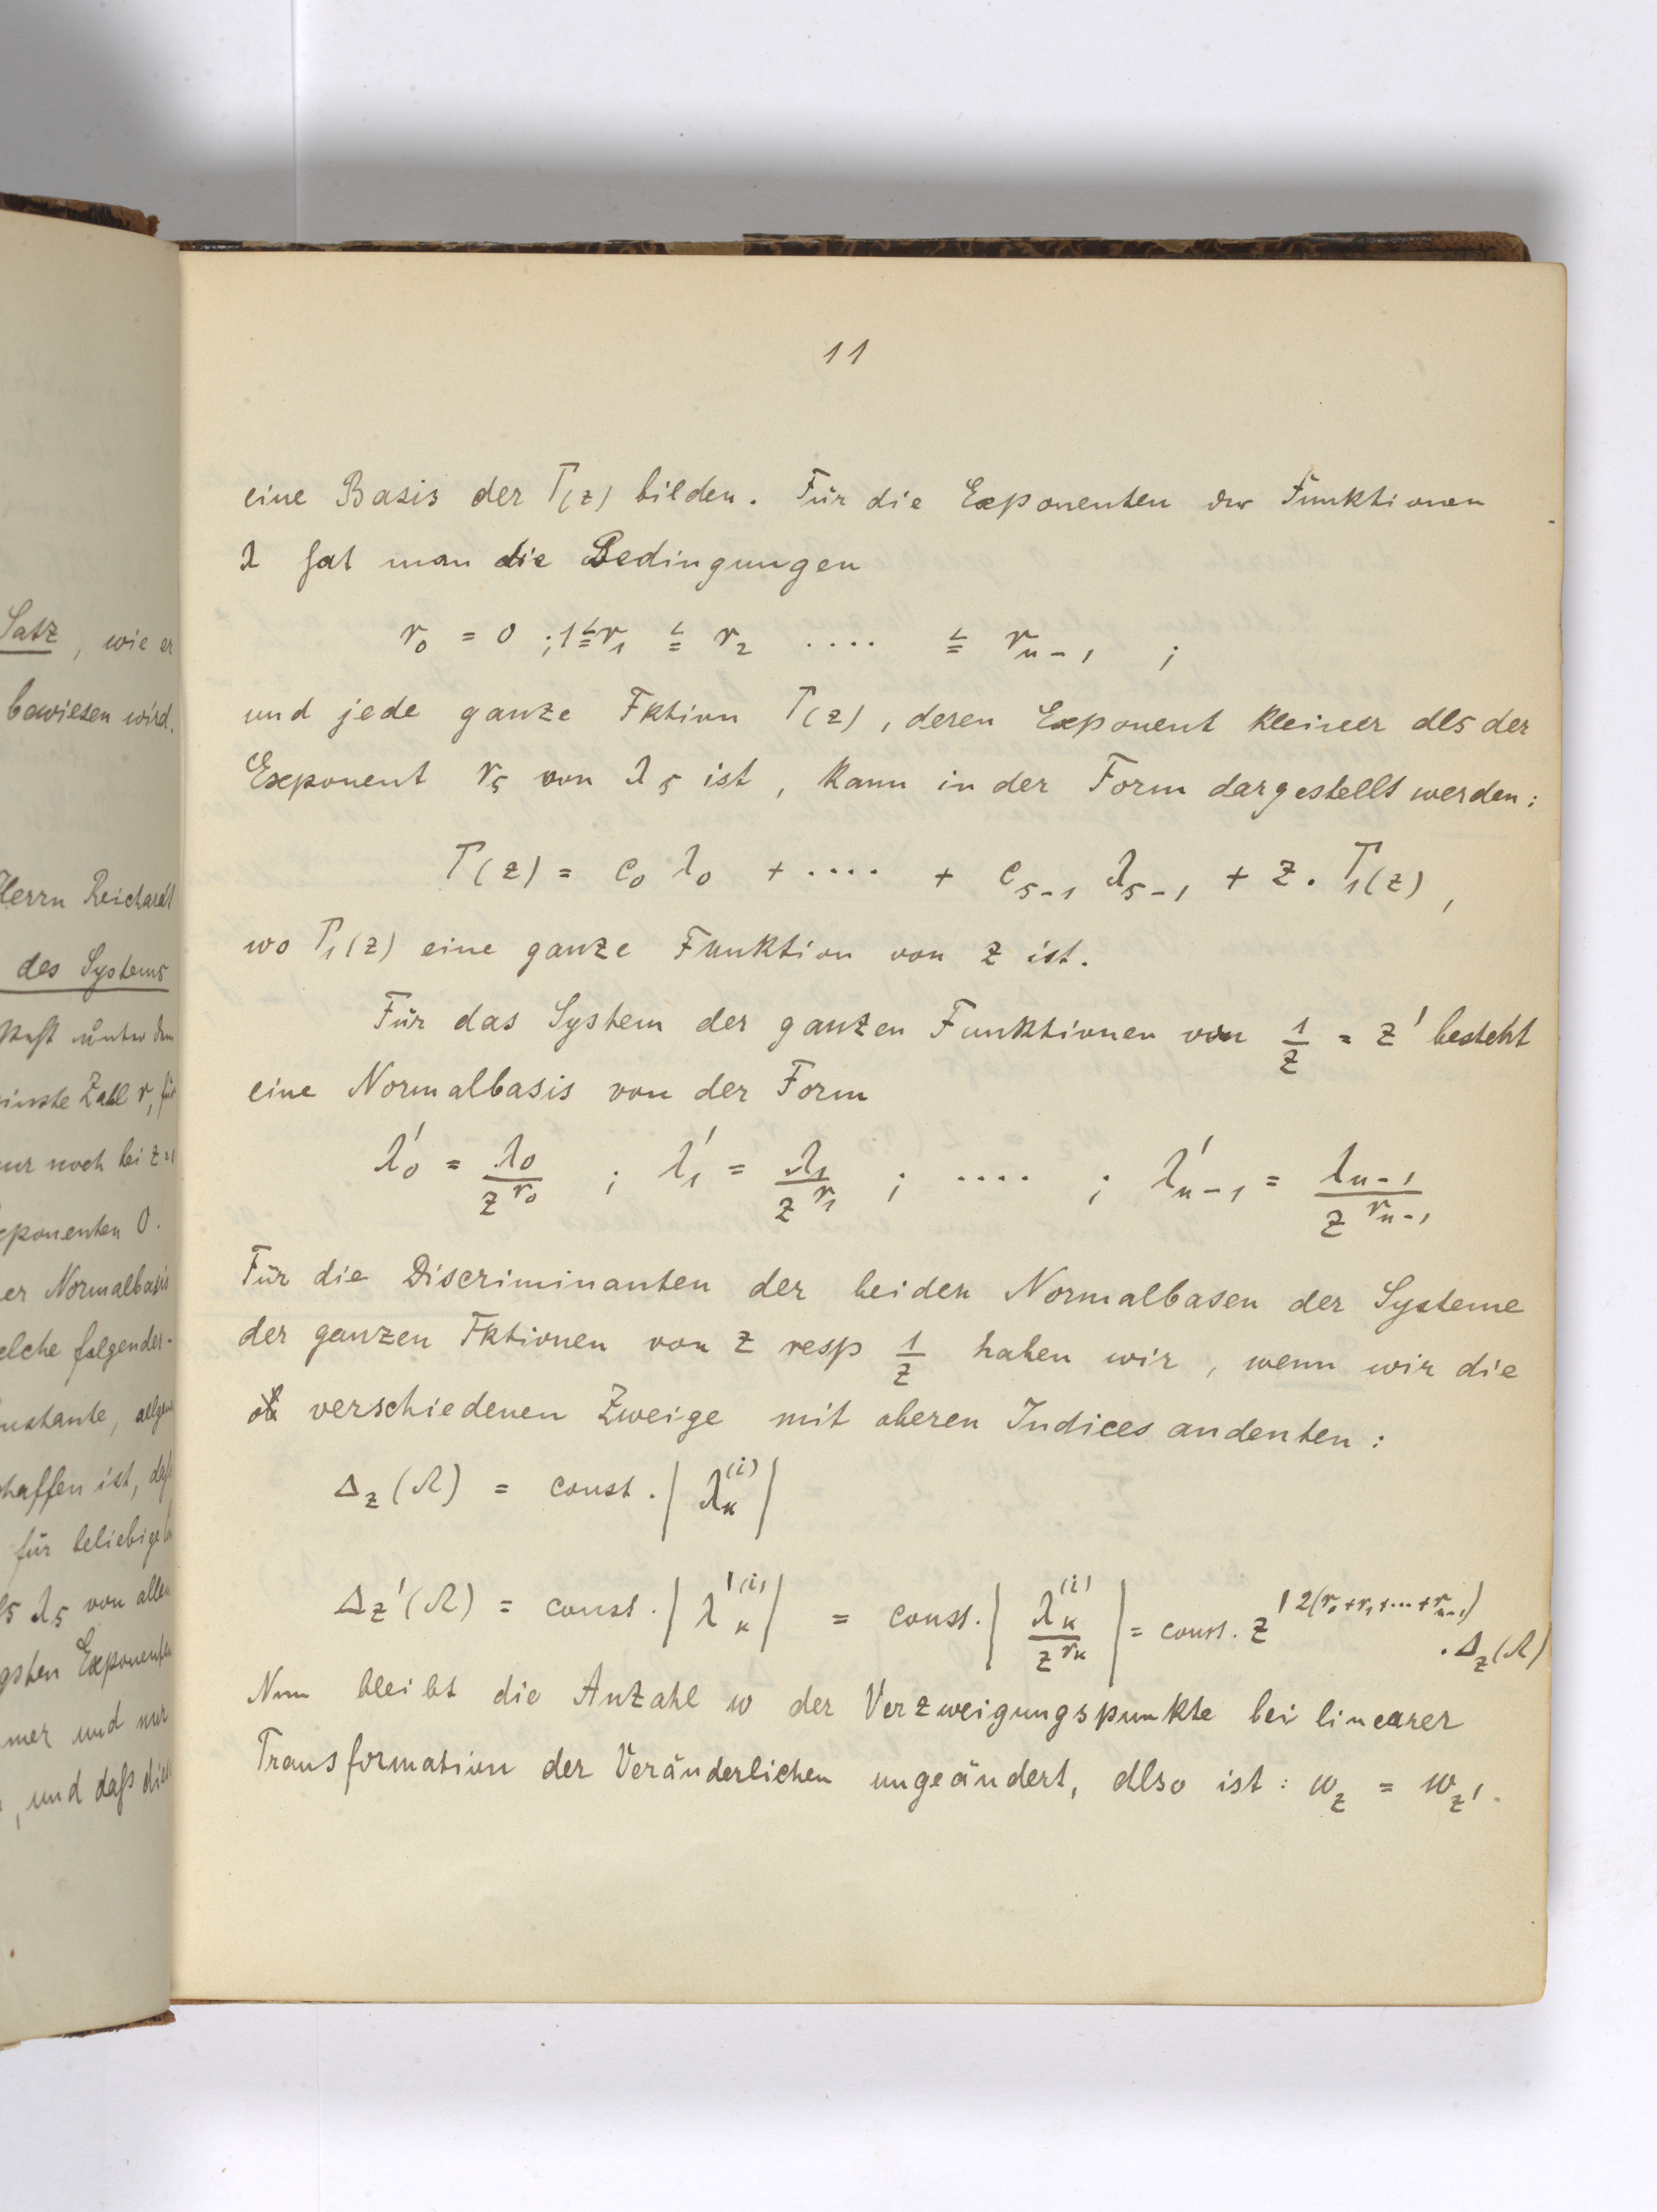 Satz, wie er
bewiesen wird.
Herrn Reichardt
des Systems
unter dem
Zahl r, für
nur noch bei z =
Exponenten 0.
er Normalbasis
elche folgender-
nstante,
haffen ist, daß
für beliebige
λ₅ von allen
gsten Exponenten
mer und nur
, und daß die
11
eine Basis der Γ(z) bilden. Für die Exponenten der Funktionen
λ hat man die Bedingungen
r₀ = 0 ; 1 ≦ r₁ ≦ r₂ .... ≦ rₙ₋₁ ;
und jede ganze Fktion Γ(z), deren Exponent kleiner als der
Exponent rₛ von λₛ ist, kann in der Form dargestellt werden:
Γ(z) = c₀ λ₀ + .... + cₛ₋₁ λₛ₋₁ + z . Γ₁(z),
wo Γ₁(z) eine ganze Funktion von z ist.
Für das System der ganzen Funktionen von 1/z = z' besteht
eine Normalbasis von der Form
λ'₀ = λ₀/z^r₀ ; λ'₁ = λ₁/z^r₁ ; .... ; λ'ₙ₋₁ = λₙ₋₁/z^rₙ₋₁
Für die Discriminanten der beiden Normalbasen der Systeme
der ganzen Fktionen von z resp 1/z haben wir, wenn wir die
verschiedenen Zweige mit oberen Indices andeuten:
Δ_z(Λ) = const. | λ_κ^(i) |
Δ_z'(Λ) = const. | λ'_κ^(i) | = const. | λ_κ^(i)/z^r_κ | = const. z'^2(r₀+r₁+...+rₙ₋₁)
. Δ_z(Λ)
Nun bleibt die Anzahl w der Verzweigungspunkte bei linearer
Transformation der Veränderlichen ungeändert, also ist: w_z = w_z'.